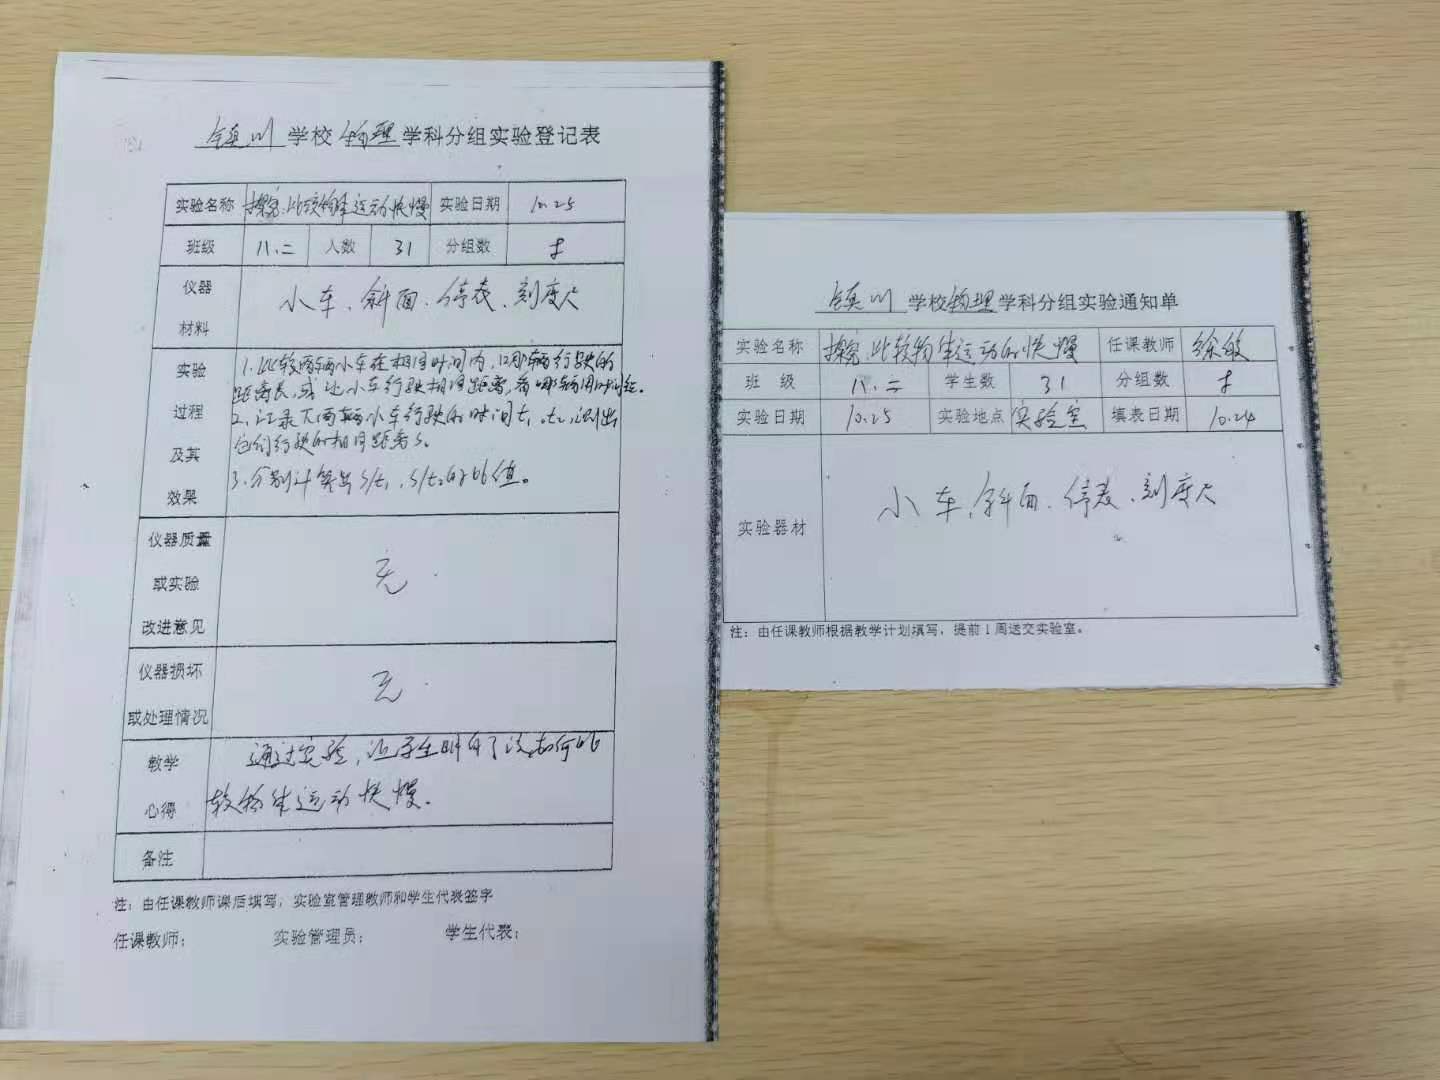 镇川学校物理学科分组实验登记表
实验名称 探究:比较物体运动快慢 实验日期 10.25
班级 八.二 人数 31 分组数
仪器
材料
小车、斜面、停表、刻度尺
实验
过程
及其
效果
1.比较两辆小车在相同时间内,哪辆行驶的
距离长,或让小车行驶相同距离,看哪辆用时短。
2.记录下两辆小车行驶的时间t₁、t₂,测出
它们行驶的相同距离S。
3.分别计算出S/t₁、S/t₂的比值。
仪器质量
或实验
改进意见
无.
仪器损坏
或处理情况
无.
教学
心得
通过实验,让学生明白了该如何比
较物体运动快慢.
备注
注:由任课教师课后填写,实验室管理教师和学生代表签字
任课教师: 实验管理员: 学生代表:
镇川学校物理学科分组实验通知单
实验名称 探究:比较物体运动的快慢 任课教师 徐敏
班 级 八.二 学生数 31 分组数
实验日期 10.25 实验地点 实验室 填表日期 10.24
实验器材 小车、斜面、停表、刻度尺
注:由任课教师根据教学计划填写,提前1周送交实验室。